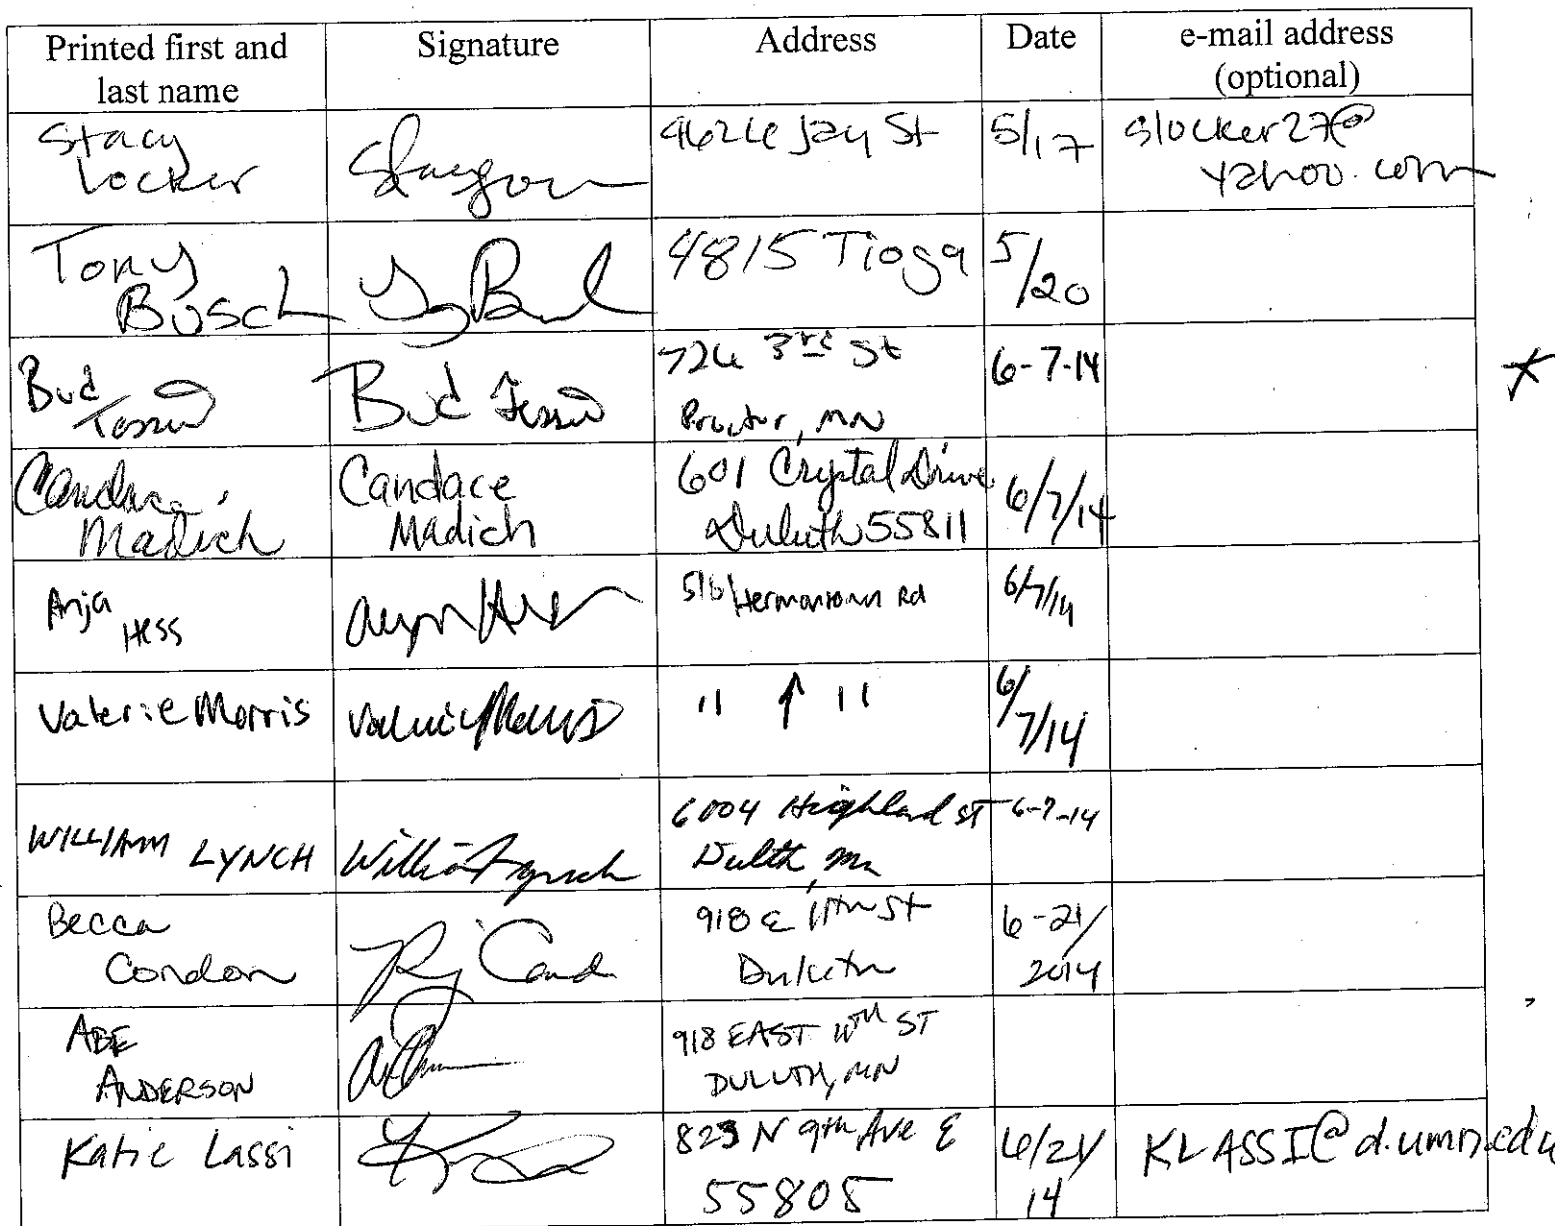 Printed first and last name Signature Address Date e-mail address (optional)
Stacy Locker Jay St 5/17 slocker27@yahoo.com
Tony Busch 4815 Tioga 5/20
Bud 3rd St Proctor, MN 6-7-14
Candace Madich Candace Madich 601 Crystal Drive Duluth 55811 6/7/14
Anja Hess Rd 6/7/14
Valerie Morris Valerie Morris " ↑ " 6/7/14
WILLIAM LYNCH William Lynch 6004 Highland ST Dulth, Mn 6-7-14
Becca Condon 918 E 11th St Duluth 6-21/2014
ABE ANDERSON 918 EAST ST DULUTH, MN
Katie Lassi 823 N 9th Ave E 55805 6/21/14 KLASSI@d.umn.edu